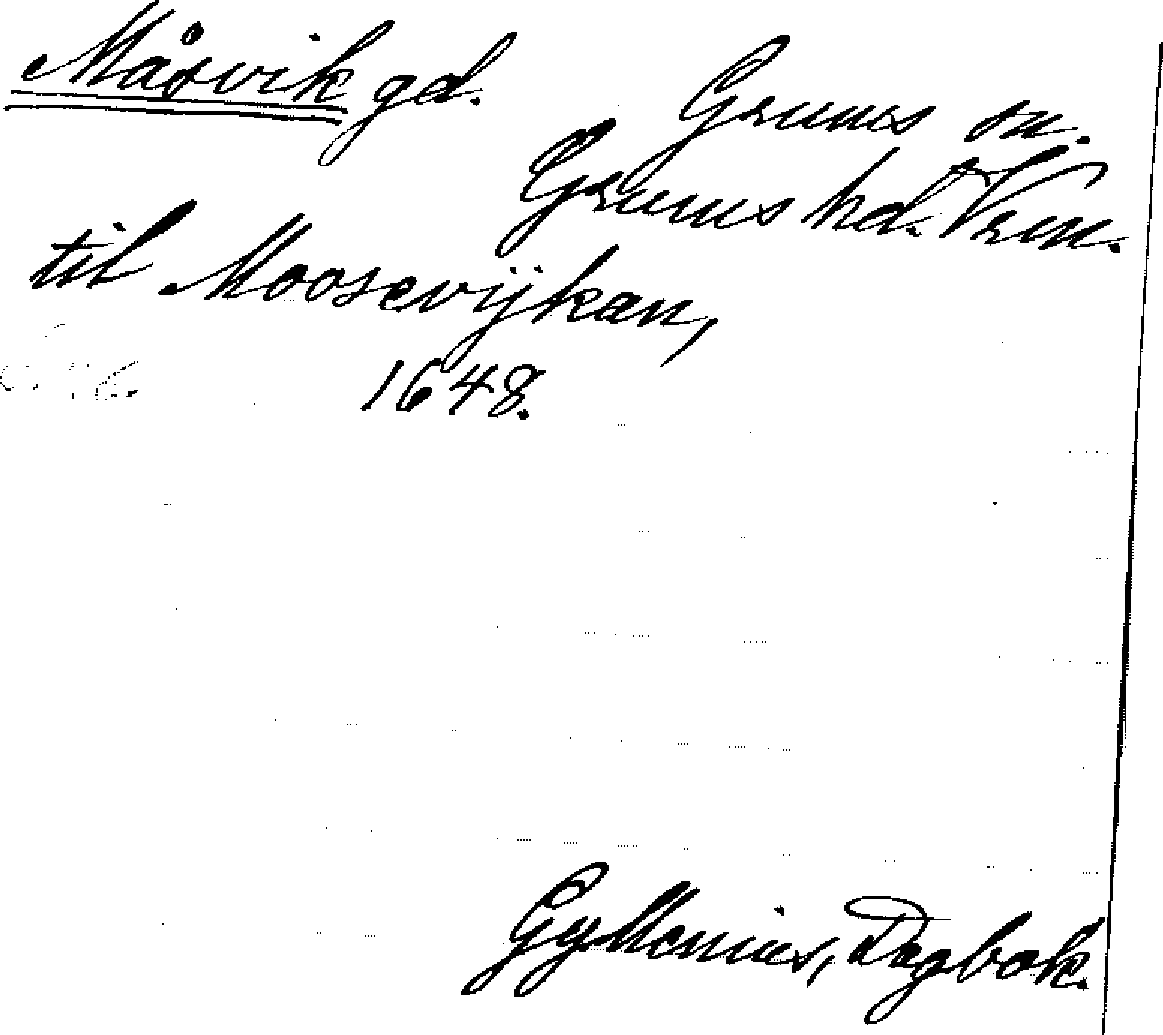 Måsvik gd. Grums sn.
Grums hd. Vrml.
til Moosevijkan,
1648.
Gyllenius, Dagbok.